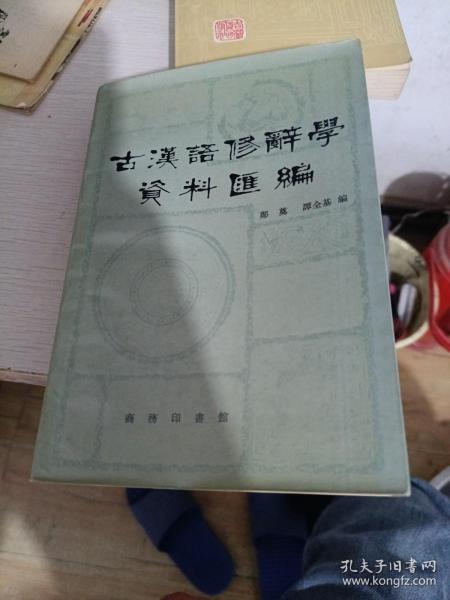 古漢語修辭學
資料匯編
鄭奠 譚全基 編
商務印書館
孔夫子旧书网
www.kongfz.com